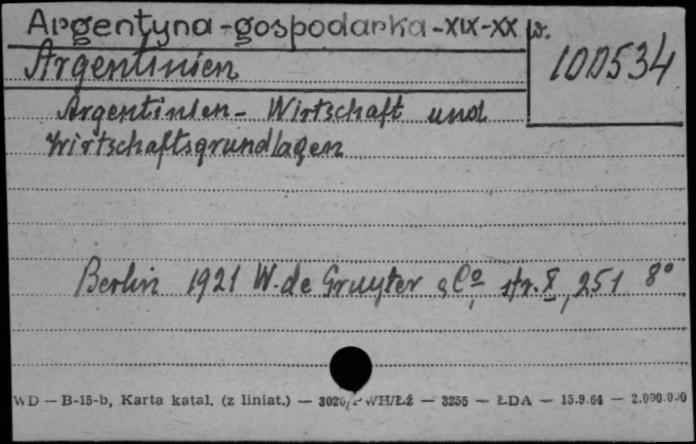 Argentyna-gospodarka-XIX-XX w.
100534
Argentinien
Argentinien - Wirtschaft und
Wirtschaftsgrundlagen
Berlin 1921 W. de Gruyter & Co, str. X, 251 8°
WD — B-15-b, Karta katal. (z liniat.) — WH/Łź — 3256 — ŁDA — 15.9.64 — 2.000.000